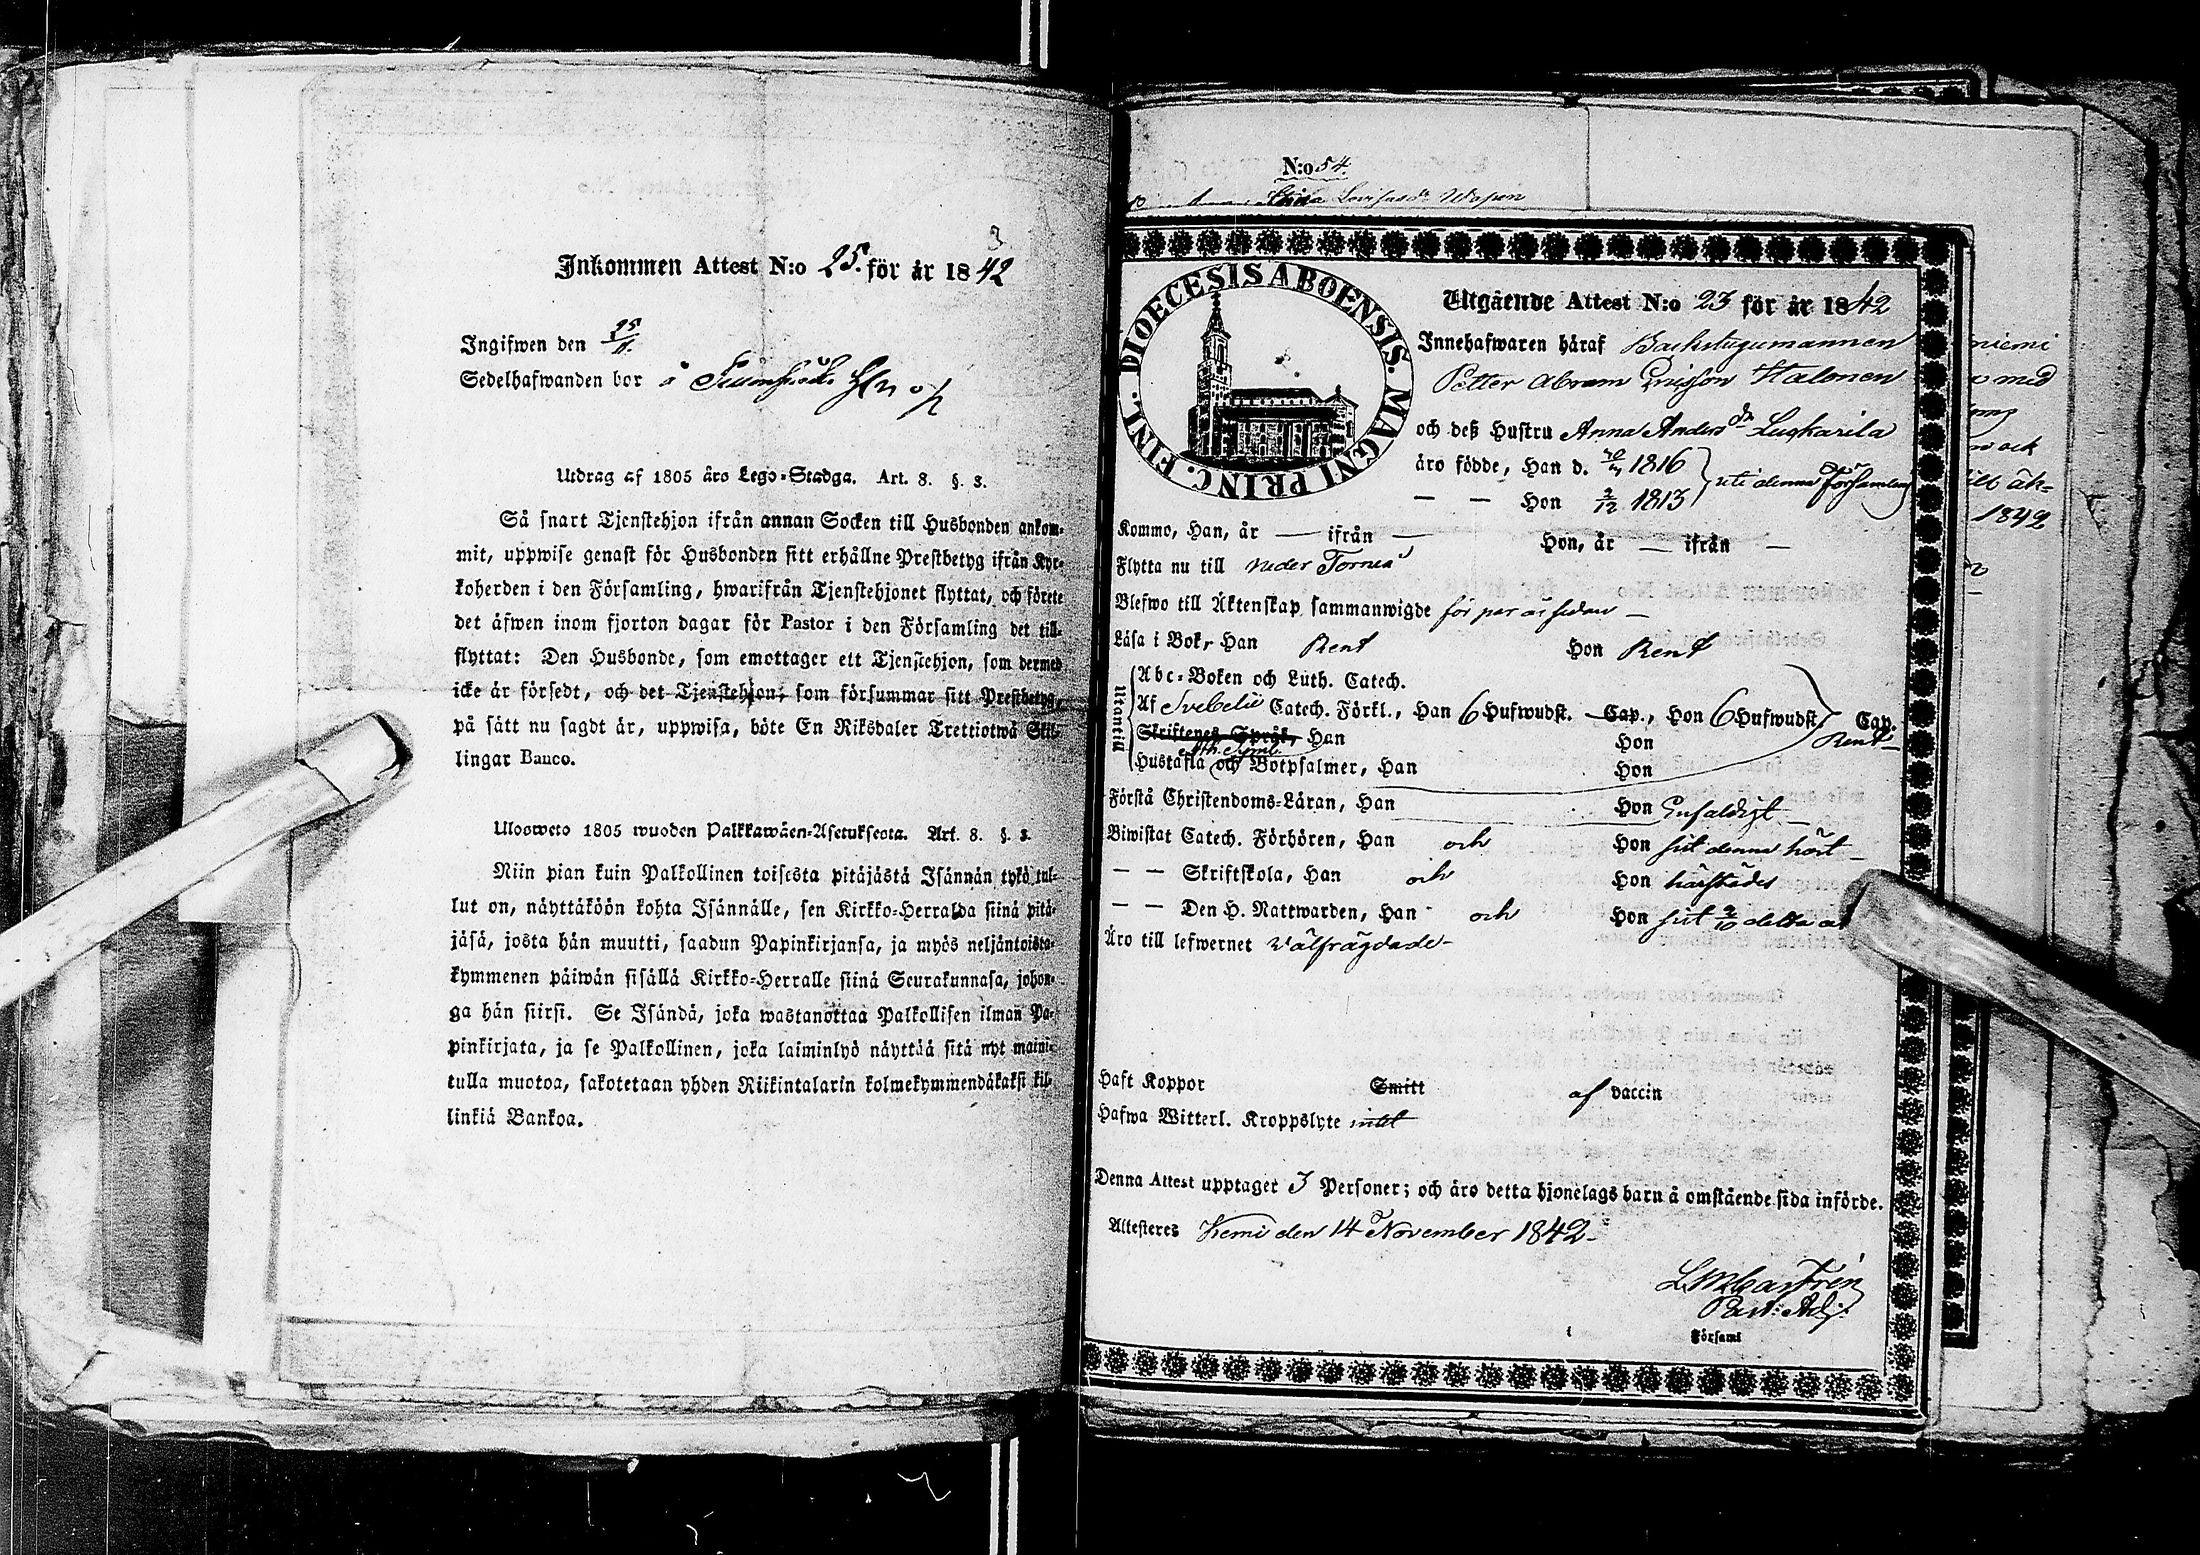 Inkommen Attest N:o 25. för år 1842
Ingifwen den 25/11.
Sedelhafwanden bor å
Utdrag af 1805 års Lego-Stadga. Art. 8. §. 3.
Så snart Tjenstehjon ifrån annan Socken till Husbonden ankom-
mit, uppwise genast för Husbonden sitt erhållne Prestbetyg ifrån Kyr-
koherden i den Församling, hwarifrån Tjenstehjonet flyttat, och förete
det äfwen inom fjorton dagar för Pastor i den Församling det till-
flyttat: Den Husbonde, som emottager ett Tjenstehjon, som dermed
icke är försedt, och det Tjenstehjon, som försummar sitt Prestbetyg,
på sätt nu sagdt är, uppwisa, böte En Riksdaler Trettiotwå Skil-
lingar Banco.
Ulosweto 1805 wuoden Palkkawäen-Asetuksesta. Art. 8. §. 3.
Niin pian kuin Palkollinen toisesta pitäjästä Isännän tykö tul-
lut on, näyttäköön kohta Isännälle, sen Kirkko-Herralda siinä pitä-
jäsä, josta hän muutti, saadun Papinkirjansa, ja myös neljäntoista-
kymmenen päiwän sisällä Kirkko-Herralle siinä Seurakunnasa, johon-
ga hän siirsi. Se Isändä, joka wastanottaa Palkollisen ilman Pa-
pinkirjata, ja se Palkollinen, joka laiminlyö näyttää sitä nyt maini-
tulla muotoa, sakotetaan yhden Riikintalarin kolmekymmendäkaksi kil-
linkiä Bankoa.
N:o 54.
Stina Lovisasdr Wapen
DIOECESIS ABOENSIS. MAGNI PRINC. FINL.
Utgående Attest N:o 23 för år 1842
Innehafwaren häraf Backstugumannen
Petter Abram Ericsson Halonen
och deß Hustru Anna Andersdr Luokarila
äro födde, Han d. 1816
— — Hon 2/12 1813 uti denna Församling
Kommo, Han, år — ifrån — Hon, år — ifrån —
Flytta nu till Neder Torneå
Blefwo till Äktenskap sammanwigde för par år sedan —
Läsa i Bok, Han Rent Hon Rent
Utantill
Abc-Boken och Luth. Catech.
Af Svebelii Catech. Förkl., Han 6 Hufwudst. Cap., Hon 6 Hufwudst. Cap.
Rent
Skriftenes Språk, Han Hon
Ath. Symb.
Hustafla och Botpsalmer, Han Hon
Förstå Christendoms-Läran, Han Hon Enfaldigt —
Biwistat Catech. Förhören, Han och Hon sist denna höst —
— — Skriftskola, Han och Hon härstädes
— — Den H. Nattwarden, Han och Hon sist 2/10 detta år
Äro till lefwernet Wälfrägdade —
Haft Koppor Smitt af vaccin
Hafwa Witterl. Kroppslyte intet
Denna Attest upptager 3 Personer; och äro detta hjonelags barn å omstående sida införde.
Attesteres Kemi den 14 November 1842 —
L M Castrén
Past: Adj:
Församl
niemi
med
och
till äk-
1842